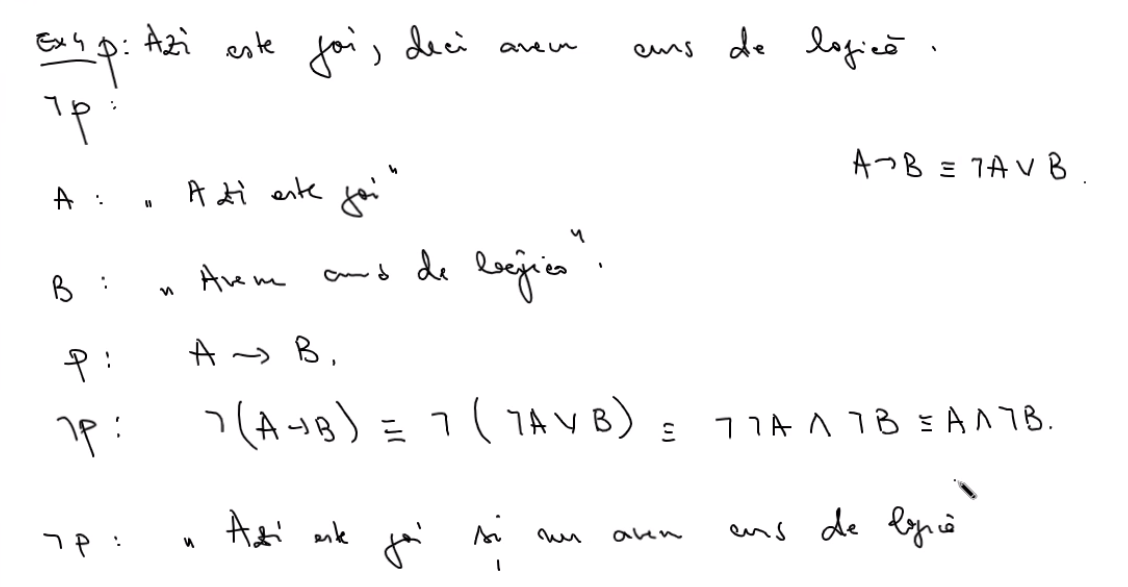 Ex 4 p: Azi este joi, deci avem curs de logică.
¬p:
A→B ≡ ¬A ∨ B.
A: „Azi este joi"
B: „Avem curs de logică".
p: A → B.
¬p: ¬(A→B) ≡ ¬(¬A ∨ B) ≡ ¬¬A ∧ ¬B ≡ A ∧ ¬B.
¬p: „Azi este joi și nu avem curs de logică